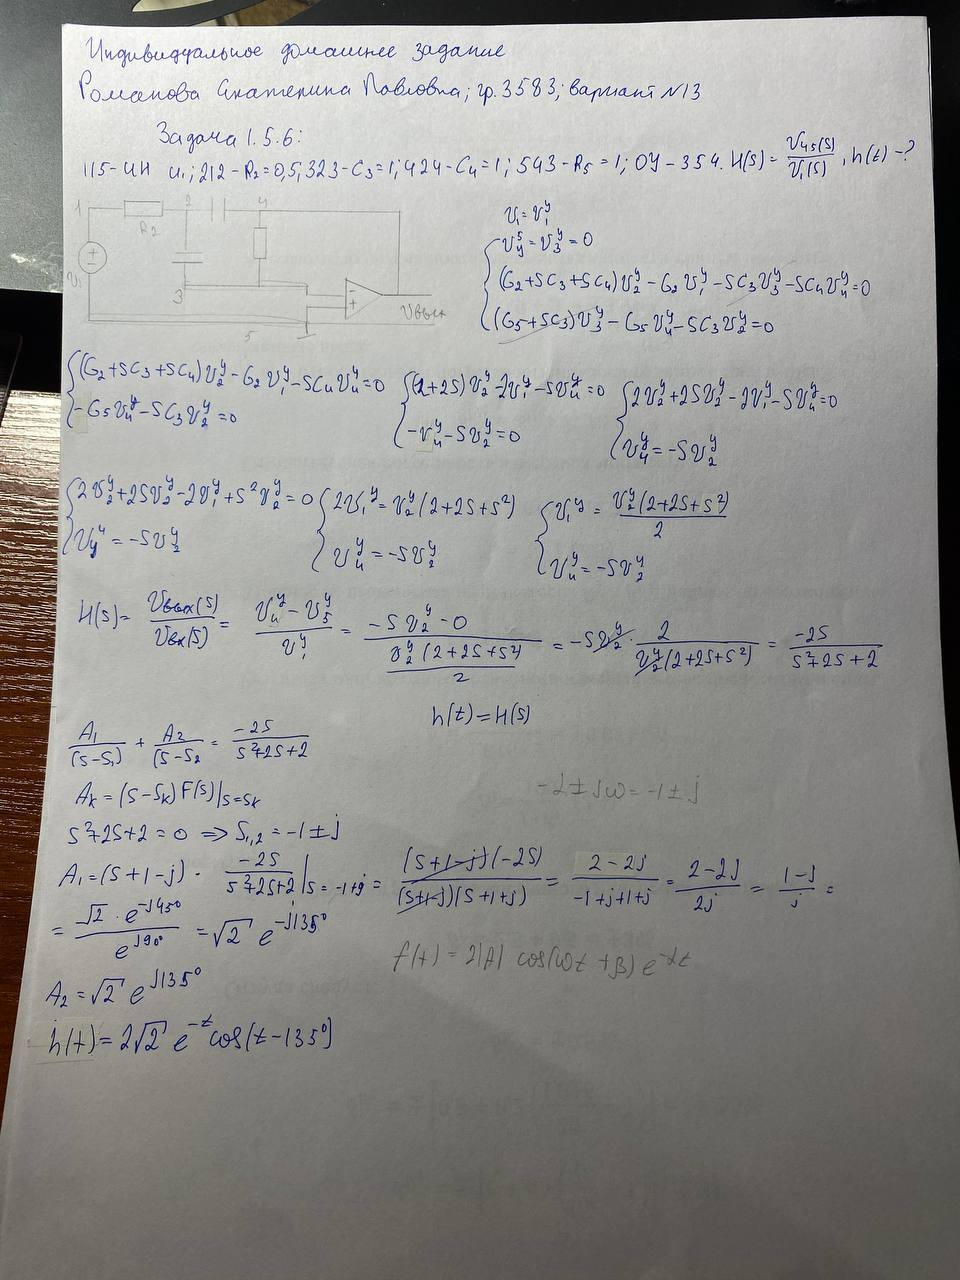 Индивидуальное домашнее задание
Романова Екатерина Павловна; гр. 3583; вариант №13
Задача 1.5.6:
115-ИН u₁; 212-R₂=0,5; 323-C₃=1; 424-C₄=1; 543-R₅=1; ОУ-354. H(S)=U₄₅(S)/U₁(S), h(t)-?
1 2 4
R₂
U₁
3
5
Uвых
U₁=U₁ʸ
U₅ʸ=U₃ʸ=0
(G₂+SC₃+SC₄)U₂ʸ-G₂U₁ʸ-SC₃U₃ʸ-SC₄U₄ʸ=0
(G₅+SC₃)U₃ʸ-G₅U₄ʸ-SC₃U₂ʸ=0
(G₂+SC₃+SC₄)U₂ʸ-G₂U₁ʸ-SC₄U₄ʸ=0 (2+2S)U₂ʸ-2U₁ʸ-SU₄ʸ=0 2U₂ʸ+2SU₂ʸ-2U₁ʸ-SU₄ʸ=0
-G₅U₄ʸ-SC₃U₂ʸ=0 -U₄ʸ-SU₂ʸ=0 U₄ʸ=-SU₂ʸ
2U₂ʸ+2SU₂ʸ-2U₁ʸ+S²U₂ʸ=0 2U₁ʸ=U₂ʸ(2+2S+S²) U₁ʸ=U₂ʸ(2+2S+S²)/2
U₄ʸ=-SU₂ʸ U₄ʸ=-SU₂ʸ U₄ʸ=-SU₂ʸ
H(S)=Uвых(S)/Uвх(S)=(U₄ʸ-U₅ʸ)/U₁ʸ=(-SU₂ʸ-0)/(U₂ʸ(2+2S+S²)/2)=-SU₂ʸ·2/(U₂ʸ(2+2S+S²))=-2S/(S²+2S+2)
h(t)=H(S)
A₁/(S-S₁)+A₂/(S-S₂=-2S/(S²+2S+2)
Aₖ=(S-Sₖ)F(S)|S=Sₖ
-2±jω=-1±j
S²+2S+2=0 ⇒ S₁,₂=-1±j
A₁=(S+1-j)·-2S/(S²+2S+2)|S=-1+j=(S+1-j)(-2S)/((S+1-j)(S+1+j))=(2-2j)/(-1+j+1+j)=(2-2j)/2j=(1-j)/j=
=√2·e^(-j45°)/e^(j90°)=√2 e^(-j135°)
f(t)=2|A| cos(ωt+β)e^(-αt)
A₂=√2 e^(j135°)
h(t)=2√2 e^(-t) cos(t-135°)